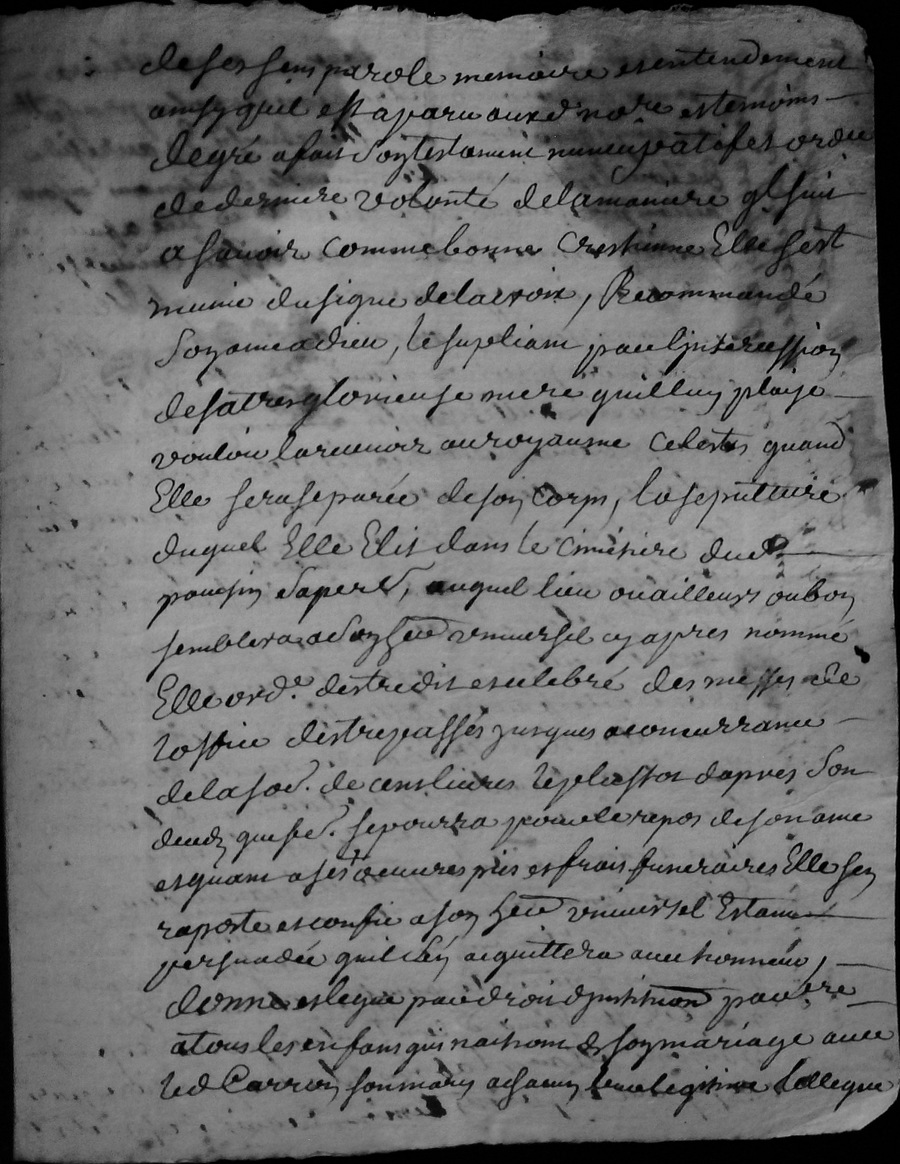 de ses sens parole memoire et entendement
ainsy quil est aparu auxd no.re et temoins
de gré a fait son testament nuncupatif et ordre
de derniere volonté de la maniere q.l suit
a savoir comme bonne crestienne Elle sest
munie du signe de la croix, Recommandé
son ame a dieu, le supliant par lintercession
de sa tres glorieuse mere quil luy plaise
vouloir la recevoir au royaume celeste quand
Elle sera separée de son corps, la sepulture
duquel Elle Elit dans le cimetiere dud
auquel lieu ou ailleurs ou bon
semblera a son her universel cy apres nommé
Elle ord.e destre dit et celebré des messes de
loffice des trepassés jusques a concurrance
de la so.e de cens livres le plustot dapres son
deces que fe.e se pourra pour le repos de son ame
et quant a ses oeuvres pies et frais funeraires Elle sen
raporte et confie a son her universel Estant
persuadée quil sen aquittera avec honneur,
donne et legue par droit dinstitution par.ere
a tous les enfans qui naitront de son mariage avec
led Carron son mary a chacun leur legitime